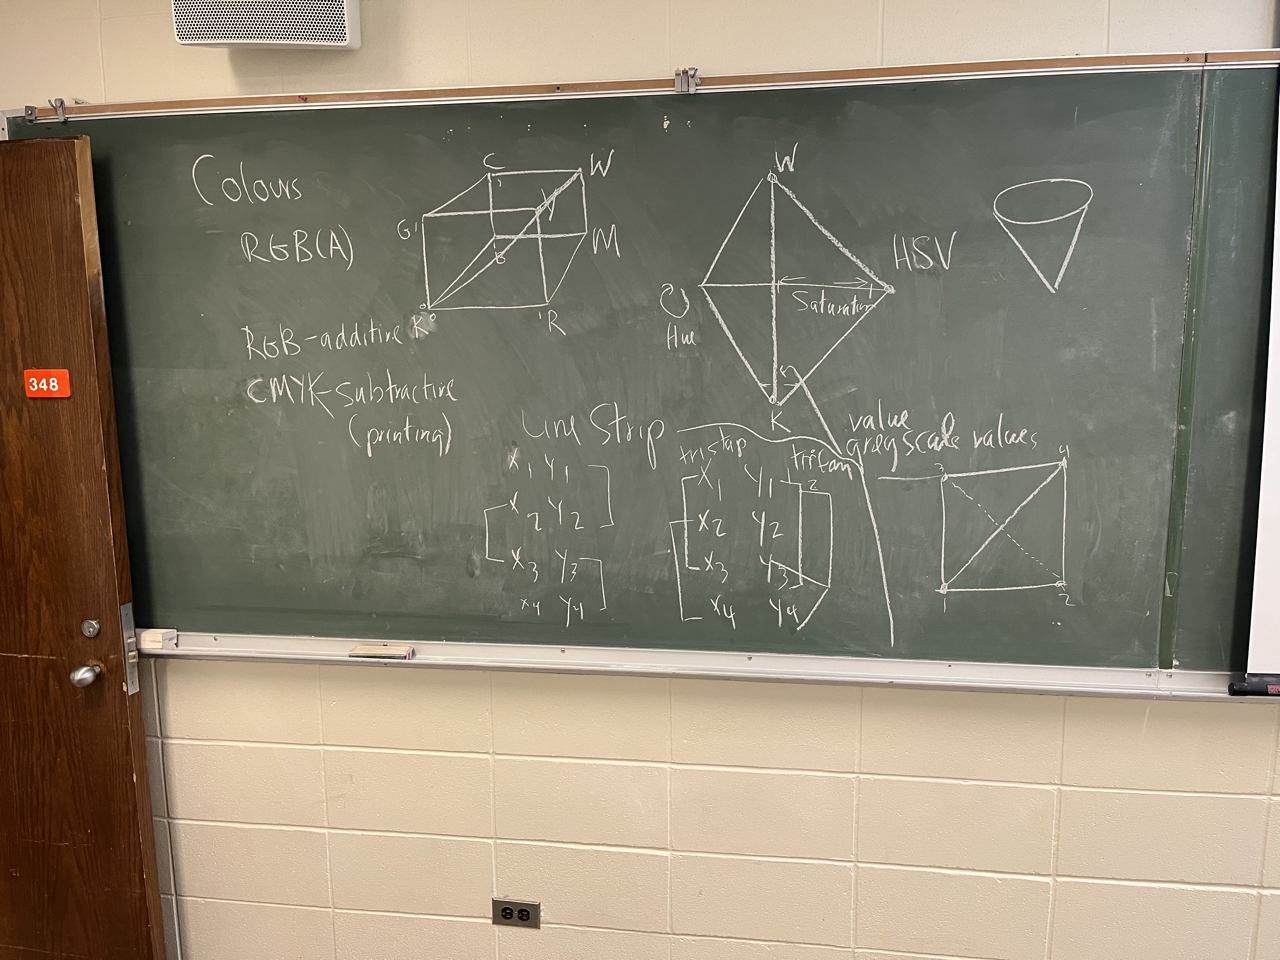 Colours
RGB(A)
RGB-additive
CMYK-subtractive
(printing)
C
W
G
Y
B
M
K
R
W
HSV
Saturation
Hue
K
value
greyscale values
Line Strip
X1 Y1
X2 Y2
X3 Y3
X4 Y4
tristrip
trifan
X1 Y1
2
X2 Y2
X3 Y3
X4 Y4
3
4
1
2
348